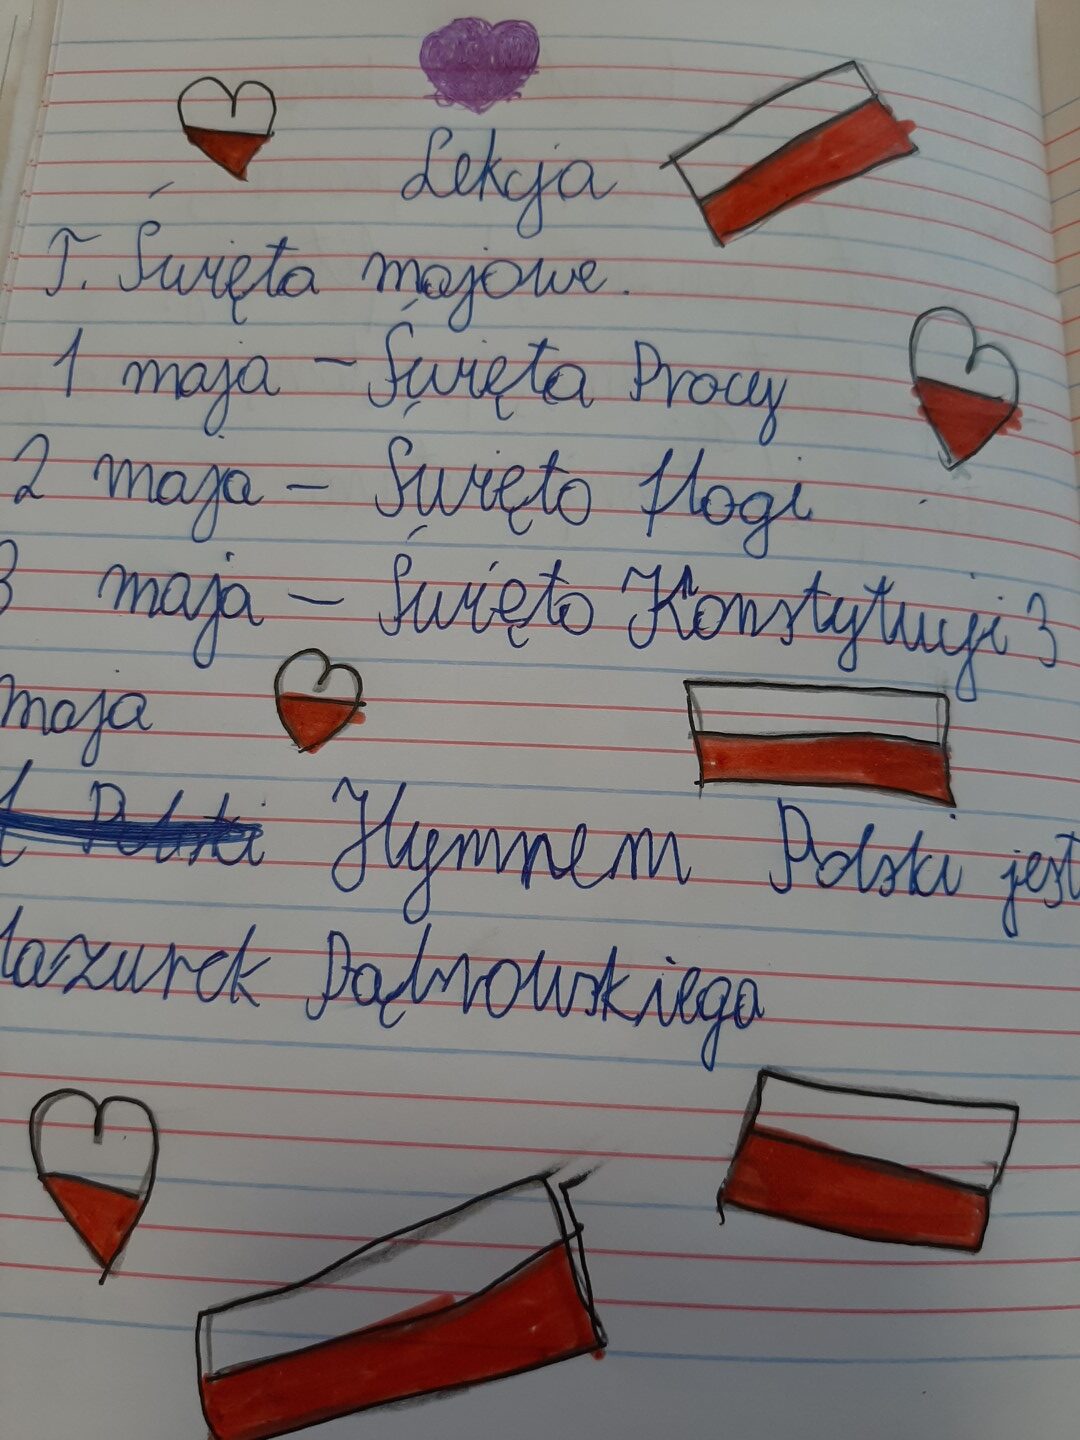 Lekcja
T. Święta majowe.
1 maja – Święta Pracy
2 maja – Święto flagi
3 maja – Święto Konstytucji 3
maja
Polski Hymnem Polski jest
Mazurek Dąbrowskiego